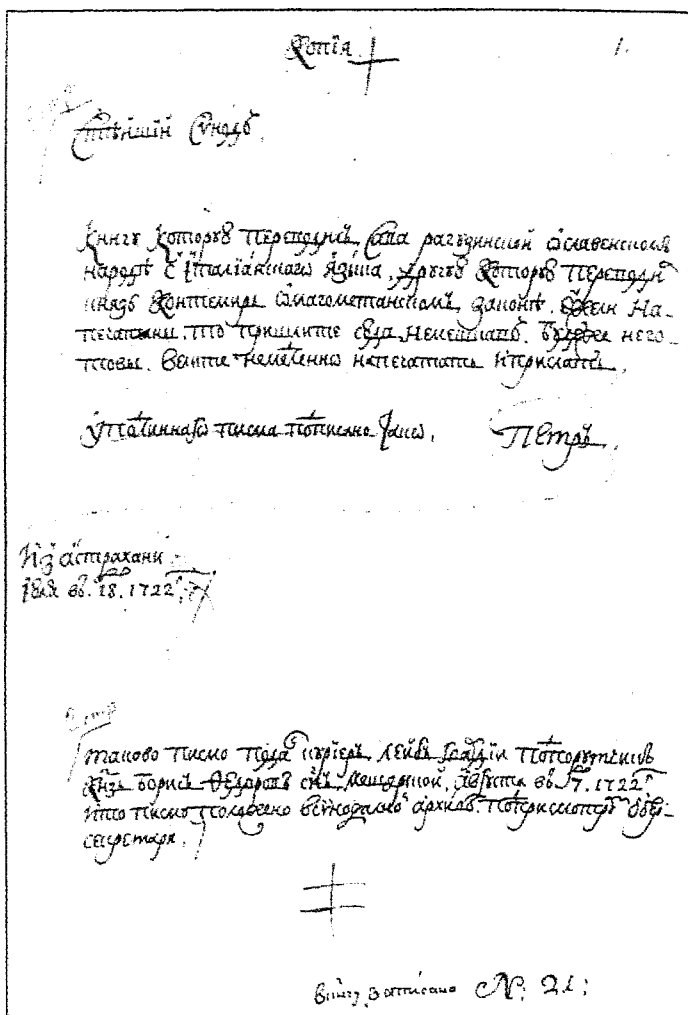 Копія
1.
Свѣтѣйшій Сѵнодъ.
книгу которую переводилъ Сава рагузинской ѡ славенскомъ
народѣ с ыталіанскаго языка, другую которую переводи
князь Контемиръ ѡ магометанскомъ законѣ. ежели на-
печатаны. то пришлите сюда немешкавъ. буде же не го-
товы. велите немедленно напечатать и прислать.
У подлиннаго писма подписано тако.
Петръ.
Из астрахани
іюля въ. 18. 1722г
таково писмо пода курїеръ лейбъ гвардіи подпорутчикъ
князь борисъ Ѳедоровъ снъ, мещерской, августа въ 7. 1722г
и то писмо положено в сѵнодално архивъ. под присмотръ обер-
секретаря.
в книгу записано №: 21: